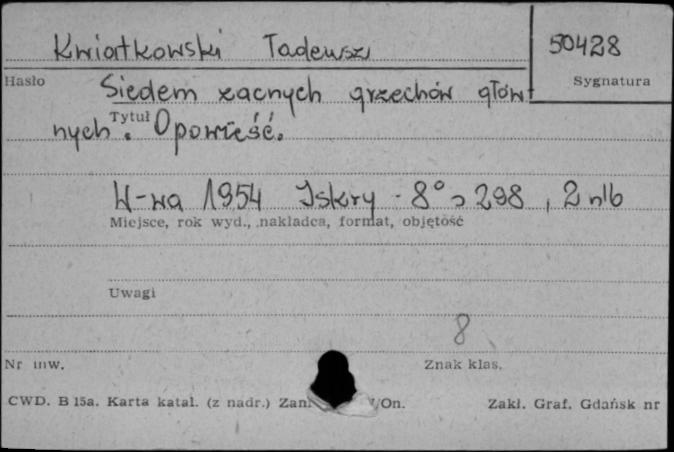 Kwiatkowski Tadeusz 50428
Hasło Sygnatura
Siedem zacnych grzechów głów
Tytuł
nych. Opowieść.
W-wa 1954 Iskry - 8° s 298, 2 nlb
Miejsce, rok wyd., nakładca, format, objętość
Uwagi
8
Nr inw. Znak klas.
CWD. B 15a. Karta katal. (z nadr.) Zam. /On. Zakł. Graf. Gdańsk nr